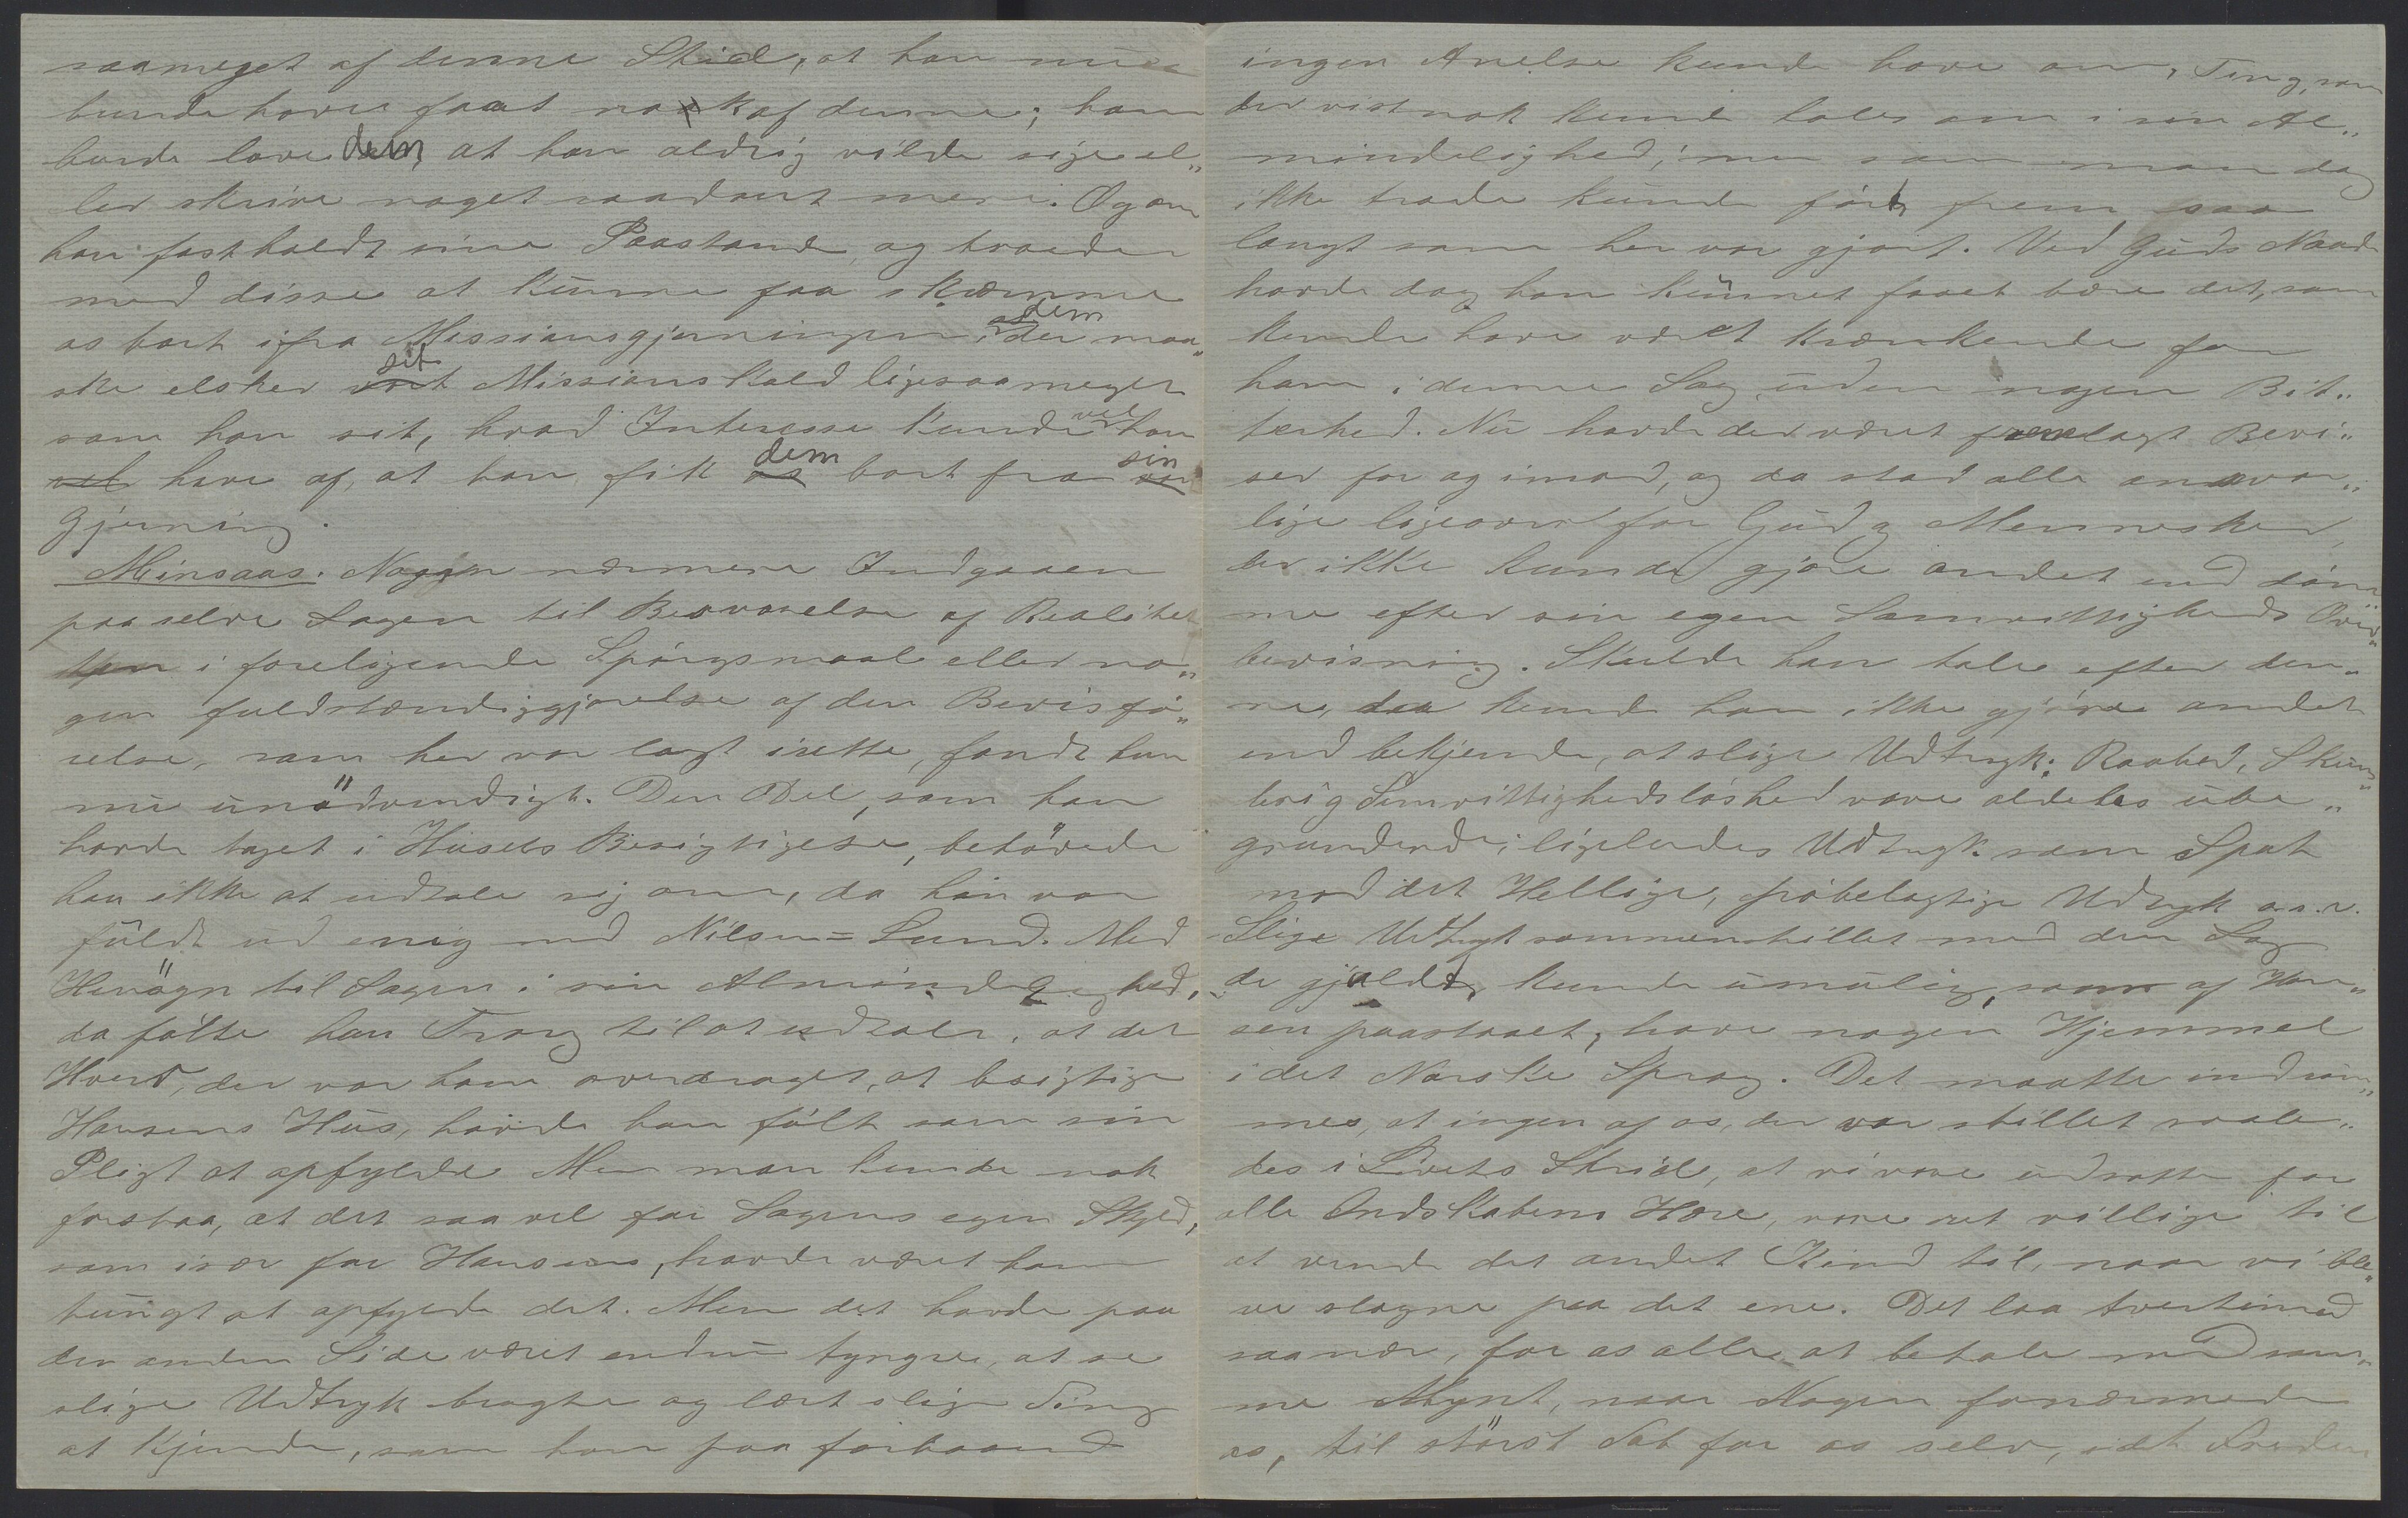 saameget af denne Skid, at han nu
burde have faaet nok af denne; han
burde love dem, at han aldrig vilde sige el„
ler skrive noget saadant mere. Og om
han fastholdt sine Paastande, og troede
med disse at kunne faa skræmme
os bort ifra Missionsgjerningen, dem der maa„
ske elsker sit Missionskald ligesaameget
som han sit, hvad Interesse kunde vel han
have af, at han fik dem bort fra sin
Gjerning.
Minsaas: Nogen nærmere Indgaaen
paa selve Sagen til Besvarelse af Realitet
ten i foreligende Spørgsmaal eller no„
gen fuldstændiggjørelse af den Bevisfø„
relse, som her var lagt irette, fandt han
nu unödvendigt. Den Del, som han
havde taget i Husets Besigtigelse, behövede
han ikke at udtale sig om, da han var
fuldt ud enig med Nilsen=Lund. Med
Hensyn til Sagen i sin Almindelighed,
da følte han Trang til at udtale, at det
Hverv, der var ham overdraget, at besigtige
Hansens Hus, havde han følt som sin
Pligt at opfylde. Men man kunde nok
forstaa, at det saavel for Sagens egen Skyld,
som især for Hansens, havde været ham
tungt at opfylde det. Men det havde paa
den anden Side været endnu tyngre, at se
slige Udtryk brugte og lært slige Ting
at kjende, som han paa forhaand
ingen Anelse kunde have om, Ting, som
der vistnok kunde tales om i sin Al„
mindelighed; men som man dog
ikke troede kunde først frem saa
langt som her var gjort. Ved Guds Naade
havde dog han kunnet faaet bære det, som
kunde have været krænkende for
ham i denne Sag uden nogen Bit„
terhed. Nu havde der været fremlagt Bevi„
ser for og imod, og da stod alle ansvar„
lige ligeover for Gud og Mennesker,
der ikke kunde gjøre andet end döm
me efter sin egen Samvittigheds Over„
bevisning. Skulde han tale efter den„
ne, da kunde han ikke gjøre andet
end bekjende, at slige Udtryk: Raahed,
Samvittighedsløshed vare aldeles ube„
grundede; ligeledes Udtryk som Spot
mod det Hellige, pöbelagtige Udtryk o.s.v.
Slige Udtryk sammenstillet med den Sag
de gjaldt, kunde umulig, som af Han„
sen paastaaet, have nogen Hjemmel
i det Norske Sprog. Det maatte indröm„
mes, at ingen af os, der var stillet saale„
des i Livets Strid, at vi vare udsatte for
alle Ondskabens Hære, vare ret villige til
at vende det andet Kind til, naar vi ble„
ve slagne paa det ene. Det laa tvertimod
saa nær, for os alle at betale med sam„
me Mynt, naar Nogen fornærmede
os, til störst Tab for os selv, idet Freden